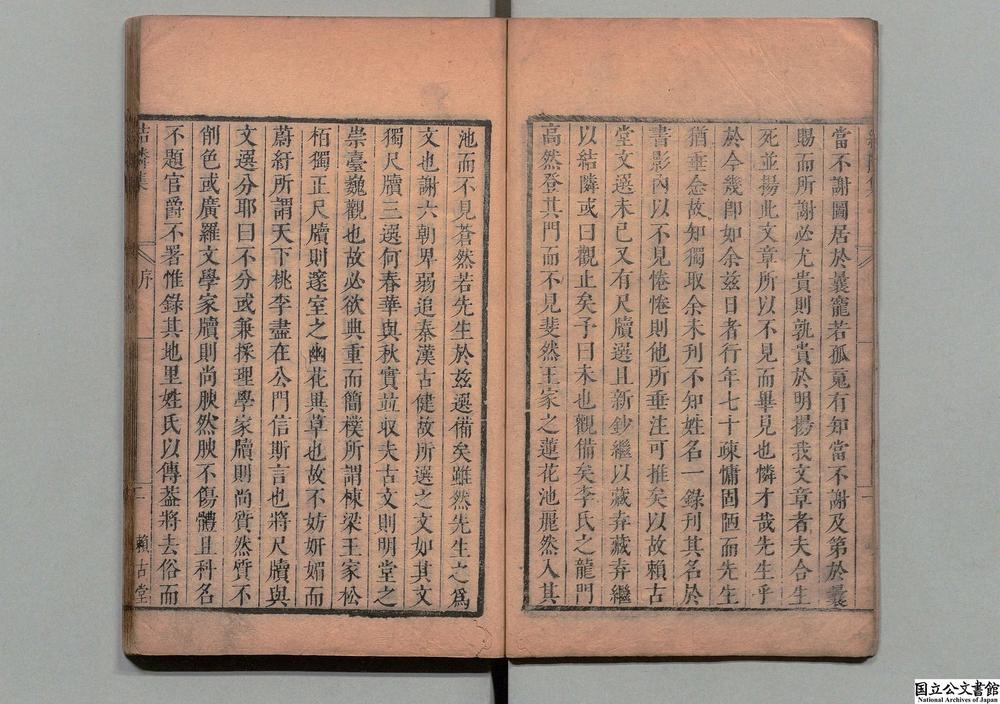 當不謝圖居於㬥寵若孤寬有知當不謝及第於㬥
賜而所謝必尤貴則孰貴於明揚我文章者夫合生
死並揚此文章所以不見而畢見也憐才哉先生乎
於今幾即如余茲日者行年七十疎慵固陋而先生
猶垂念故知獨取余未刊不知姓名一錄刊其名於
書影內以不見惓惓則他所垂注可推矣以故賴古
堂文選未已又有尺牘選且新鈔繼以藏弆藏弆繼
以結隣或曰觀止矣予曰未也觀備矣李氏之龍門
高然登其門而不見斐然王家之蓮花池麗然入其
池而不見蒼然若先生於茲選備矣雖然先生之為
文也謝六朝卑弱追秦漢古健故所選之文如其文
獨尺牘三選何春華與秋實並収夫古文則明堂之
崇臺巍觀也故必欲典重而簡樸所謂棟梁王家松
栢獨正尺牘則邃室之幽花異草也故不妨妍媚而
蔚紆所謂天下桃李盡在公門信斯言也將尺牘與
文選分耶曰不分或兼採理學家牘則尚質然質不
削色或廣羅文學家牘則尚腴然腴不傷體且科名
不題官爵不署惟錄其地里姓氏以傳葢將去俗而
結隣集
序
二
賴古堂
国立公文書館
National Archives of Japan